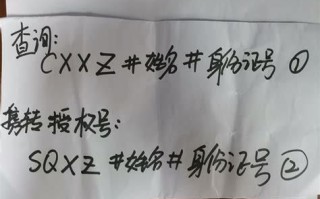 查询:
CXXZ#姓名#身份证号①
携转授权号:
SQXZ#姓名#身份证号②